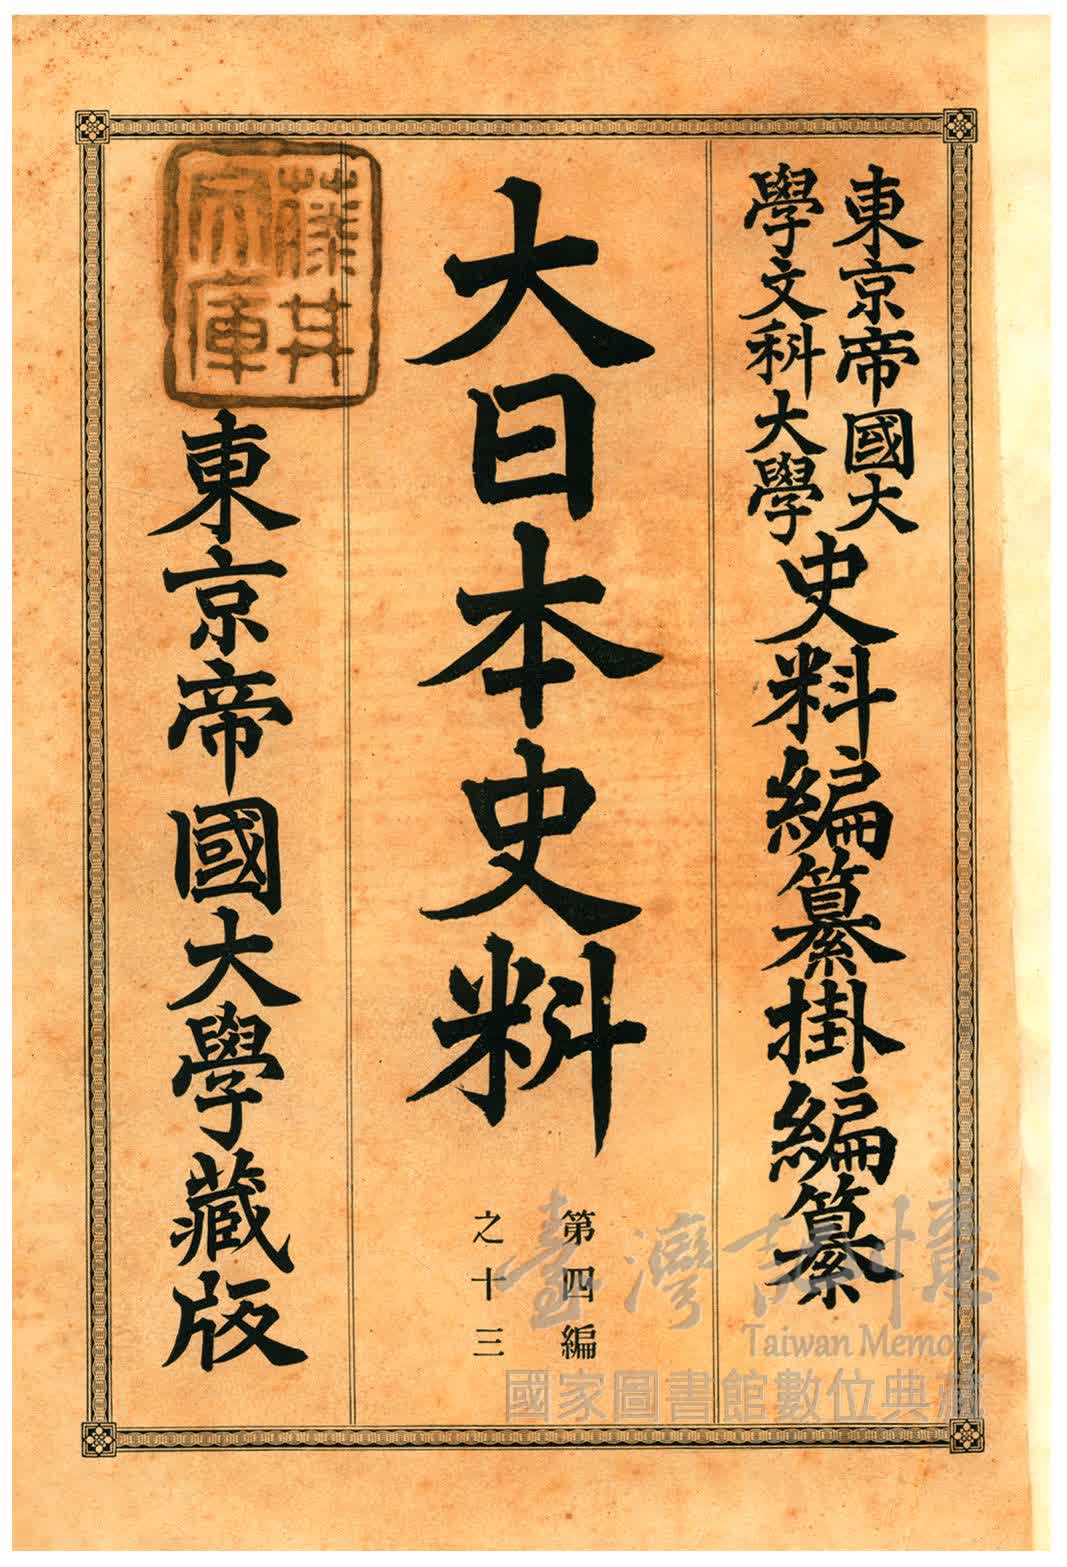 東京帝國大
學文科大學
史料編纂掛編纂
大日本史料
第四編
之十三
東京帝國大學藏版
藤井
文庫
臺灣記憶
Taiwan Memory
國家圖書館數位典藏